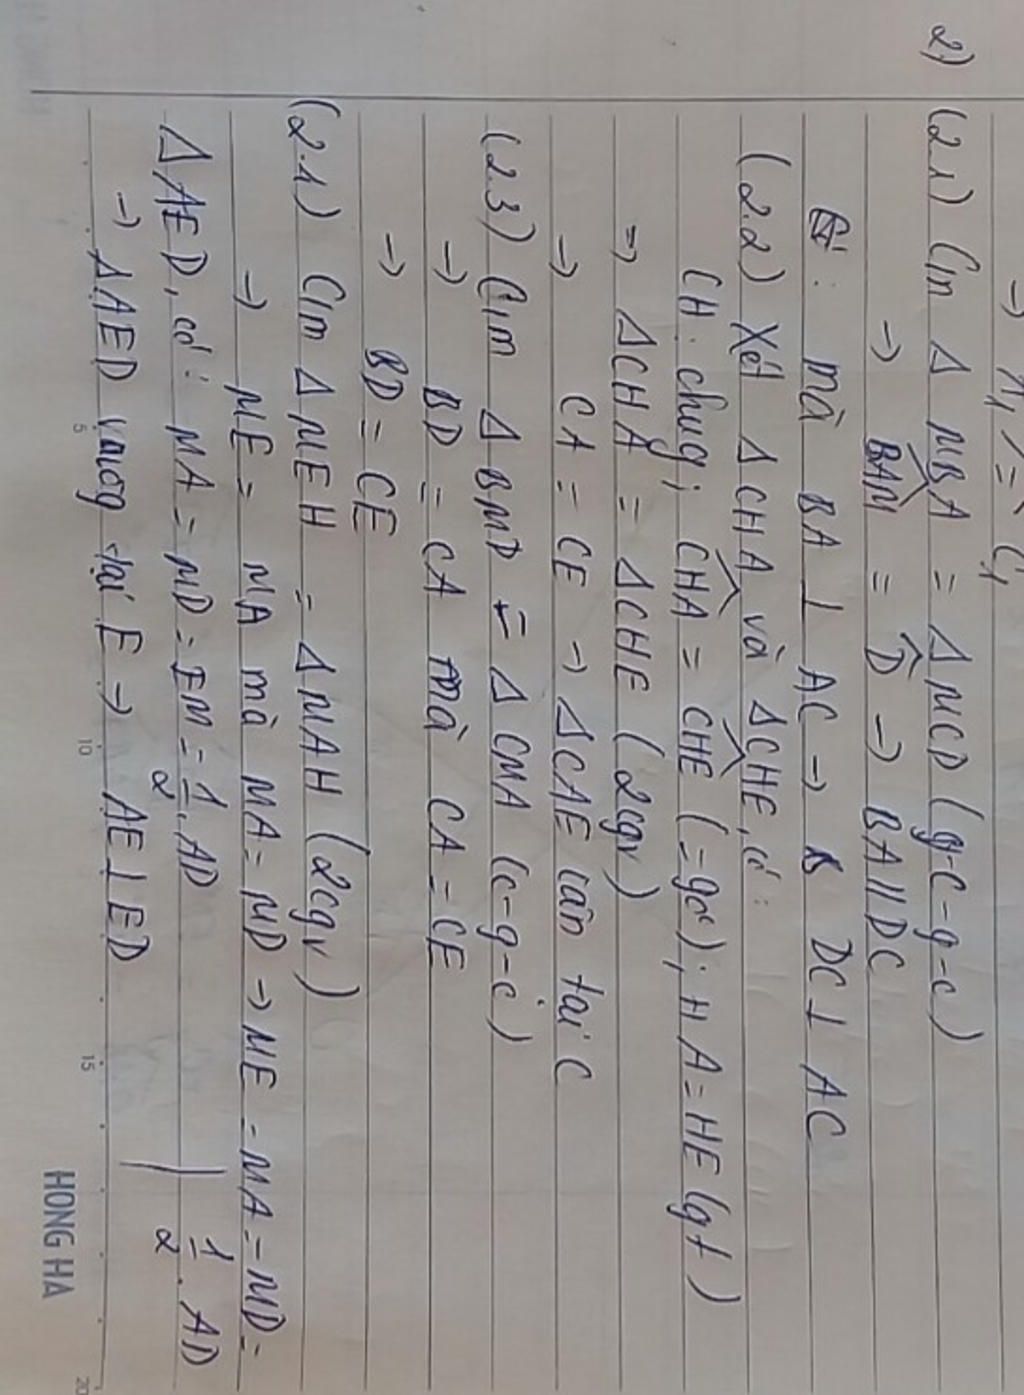 2) (2.1) C/m Δ MBA = Δ MCD (g-c-g-c)
→ BAM = D → BA // DC
mà BA ⊥ AC → DC ⊥ AC
(2.2) Xét Δ CHA và Δ CHE, có:
CH: chung; CHA = CHE (= go); HA = HE (gt)
⇒ Δ CHA = Δ CHE (2cgv)
→ CA = CE → Δ CAE cân tại C
(2.3) C/m Δ BMD = Δ CMA (c-g-c)
→ BD = CA mà CA = CE
→ BD = CE
(2.1) C/m Δ MEH = Δ MAH (2cgv)
→ ME = MA mà MA = MD → ME = MA = MD =
1/2 . AD
Δ AED, có: MA = MD = EM = 1/2 . AD
→ Δ AED vuông tại E → AE ⊥ ED
5 10 15 20
HONG HA